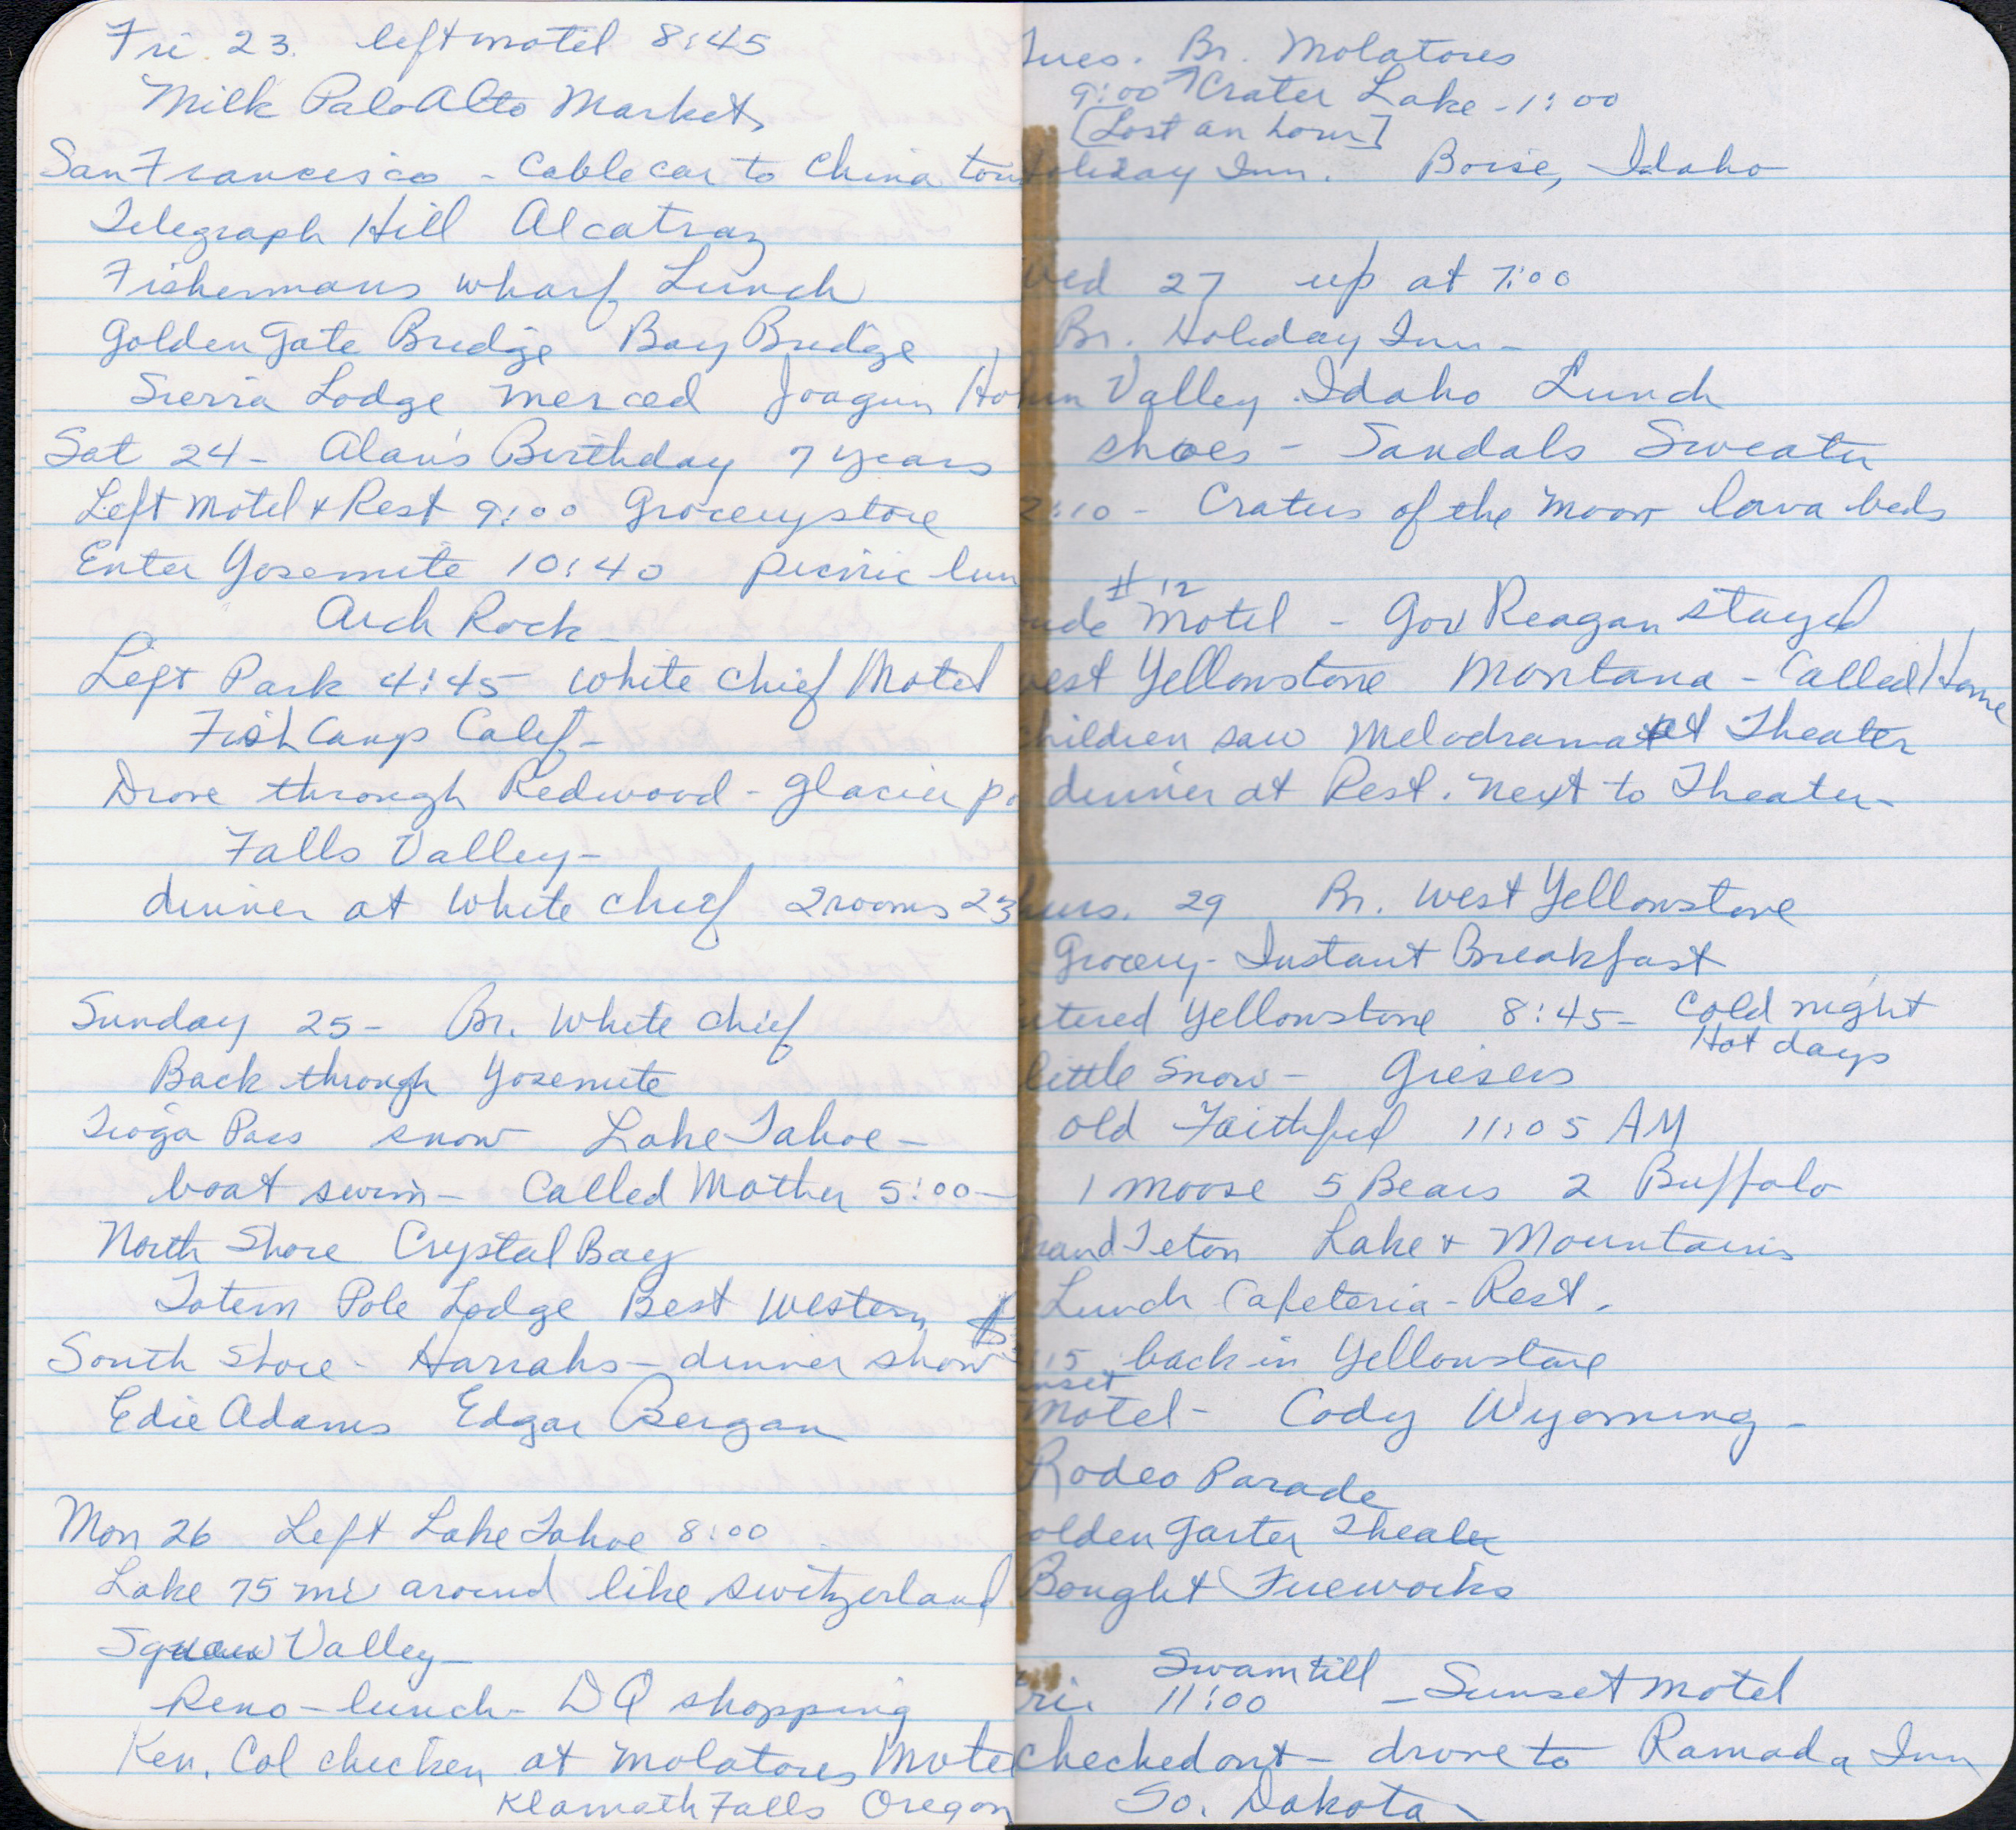 Fri 23. left motel 8:45
Milk Palo Alto Market,
San Francisco - Cable car to China tow
Telegraph Hill Alcatraz
Fishermans wharf Lunch
Golden Gate Bridge Bay Bridge
Sierra Lodge Merced Joaqun Ho
Sat 24 - Alan's Birthday 7 years
Left Motel & Rest 9:00 Grocery store
Enter Yosemite 10:40 picnic lun
Arch Rock -
Left Park 4:45 White Chief Motel
Fish Camp Calif -
Drove through Redwood - Glacier po
Falls Valley -
dinner at White Chief 2 rooms 23
Sunday 25 - Br. White Chief
Back through Yosemite
Tioga Pass snow Lake Tahoe -
boat swim - Called Mother 5:00 -
North Shore Crystal Bay
Totem Pole Lodge Best Western
South Shore - Harrahs - dinner show
Edie Adams Edgar Bergan
Mon 26 Left Lake Tahoe 8:00
Lake 75 mi around like Switzerland
Squaw Valley -
Reno - lunch - DQ shopping
Ken. Col chicken at Molatores Mote
Klamath Falls Oregon
Tues. Br. Molatores
9:00 Crater Lake - 1:00
[Lost an hour]
Holiday Inn. Boise, Idaho
Wed 27 up at 7:00
Br. Holiday Inn -
un Valley Idaho Lunch
shoes - Sandals Sweater
2:10 - Craters of the Moon lava beds
#12
ude Motel - Gov Reagan stayed
west Yellowstone Montana - Called Home
children saw Melodrama at Theater
dinner at Rest. next to Theater -
hurs. 29 Br. West Yellowstone
Grocery - Instant Breakfast
ntered Yellowstone 8:45 - Cold night
Hot days
little snow - Giesers
Old Faithful 11:05 AM
1 moose 5 Bears 2 Buffalo
rand Teton Lake & Mountains
Lunch Cafeteria - Rest.
:15 back in Yellowstone
unset
Motel - Cody Wyoming -
Rodeo Parade
olden Garter Theater
Bought Fireworks
Fri. Swam till 11:00 - Sunset Motel
checked out - drove to Ramada Inn
So. Dakota -